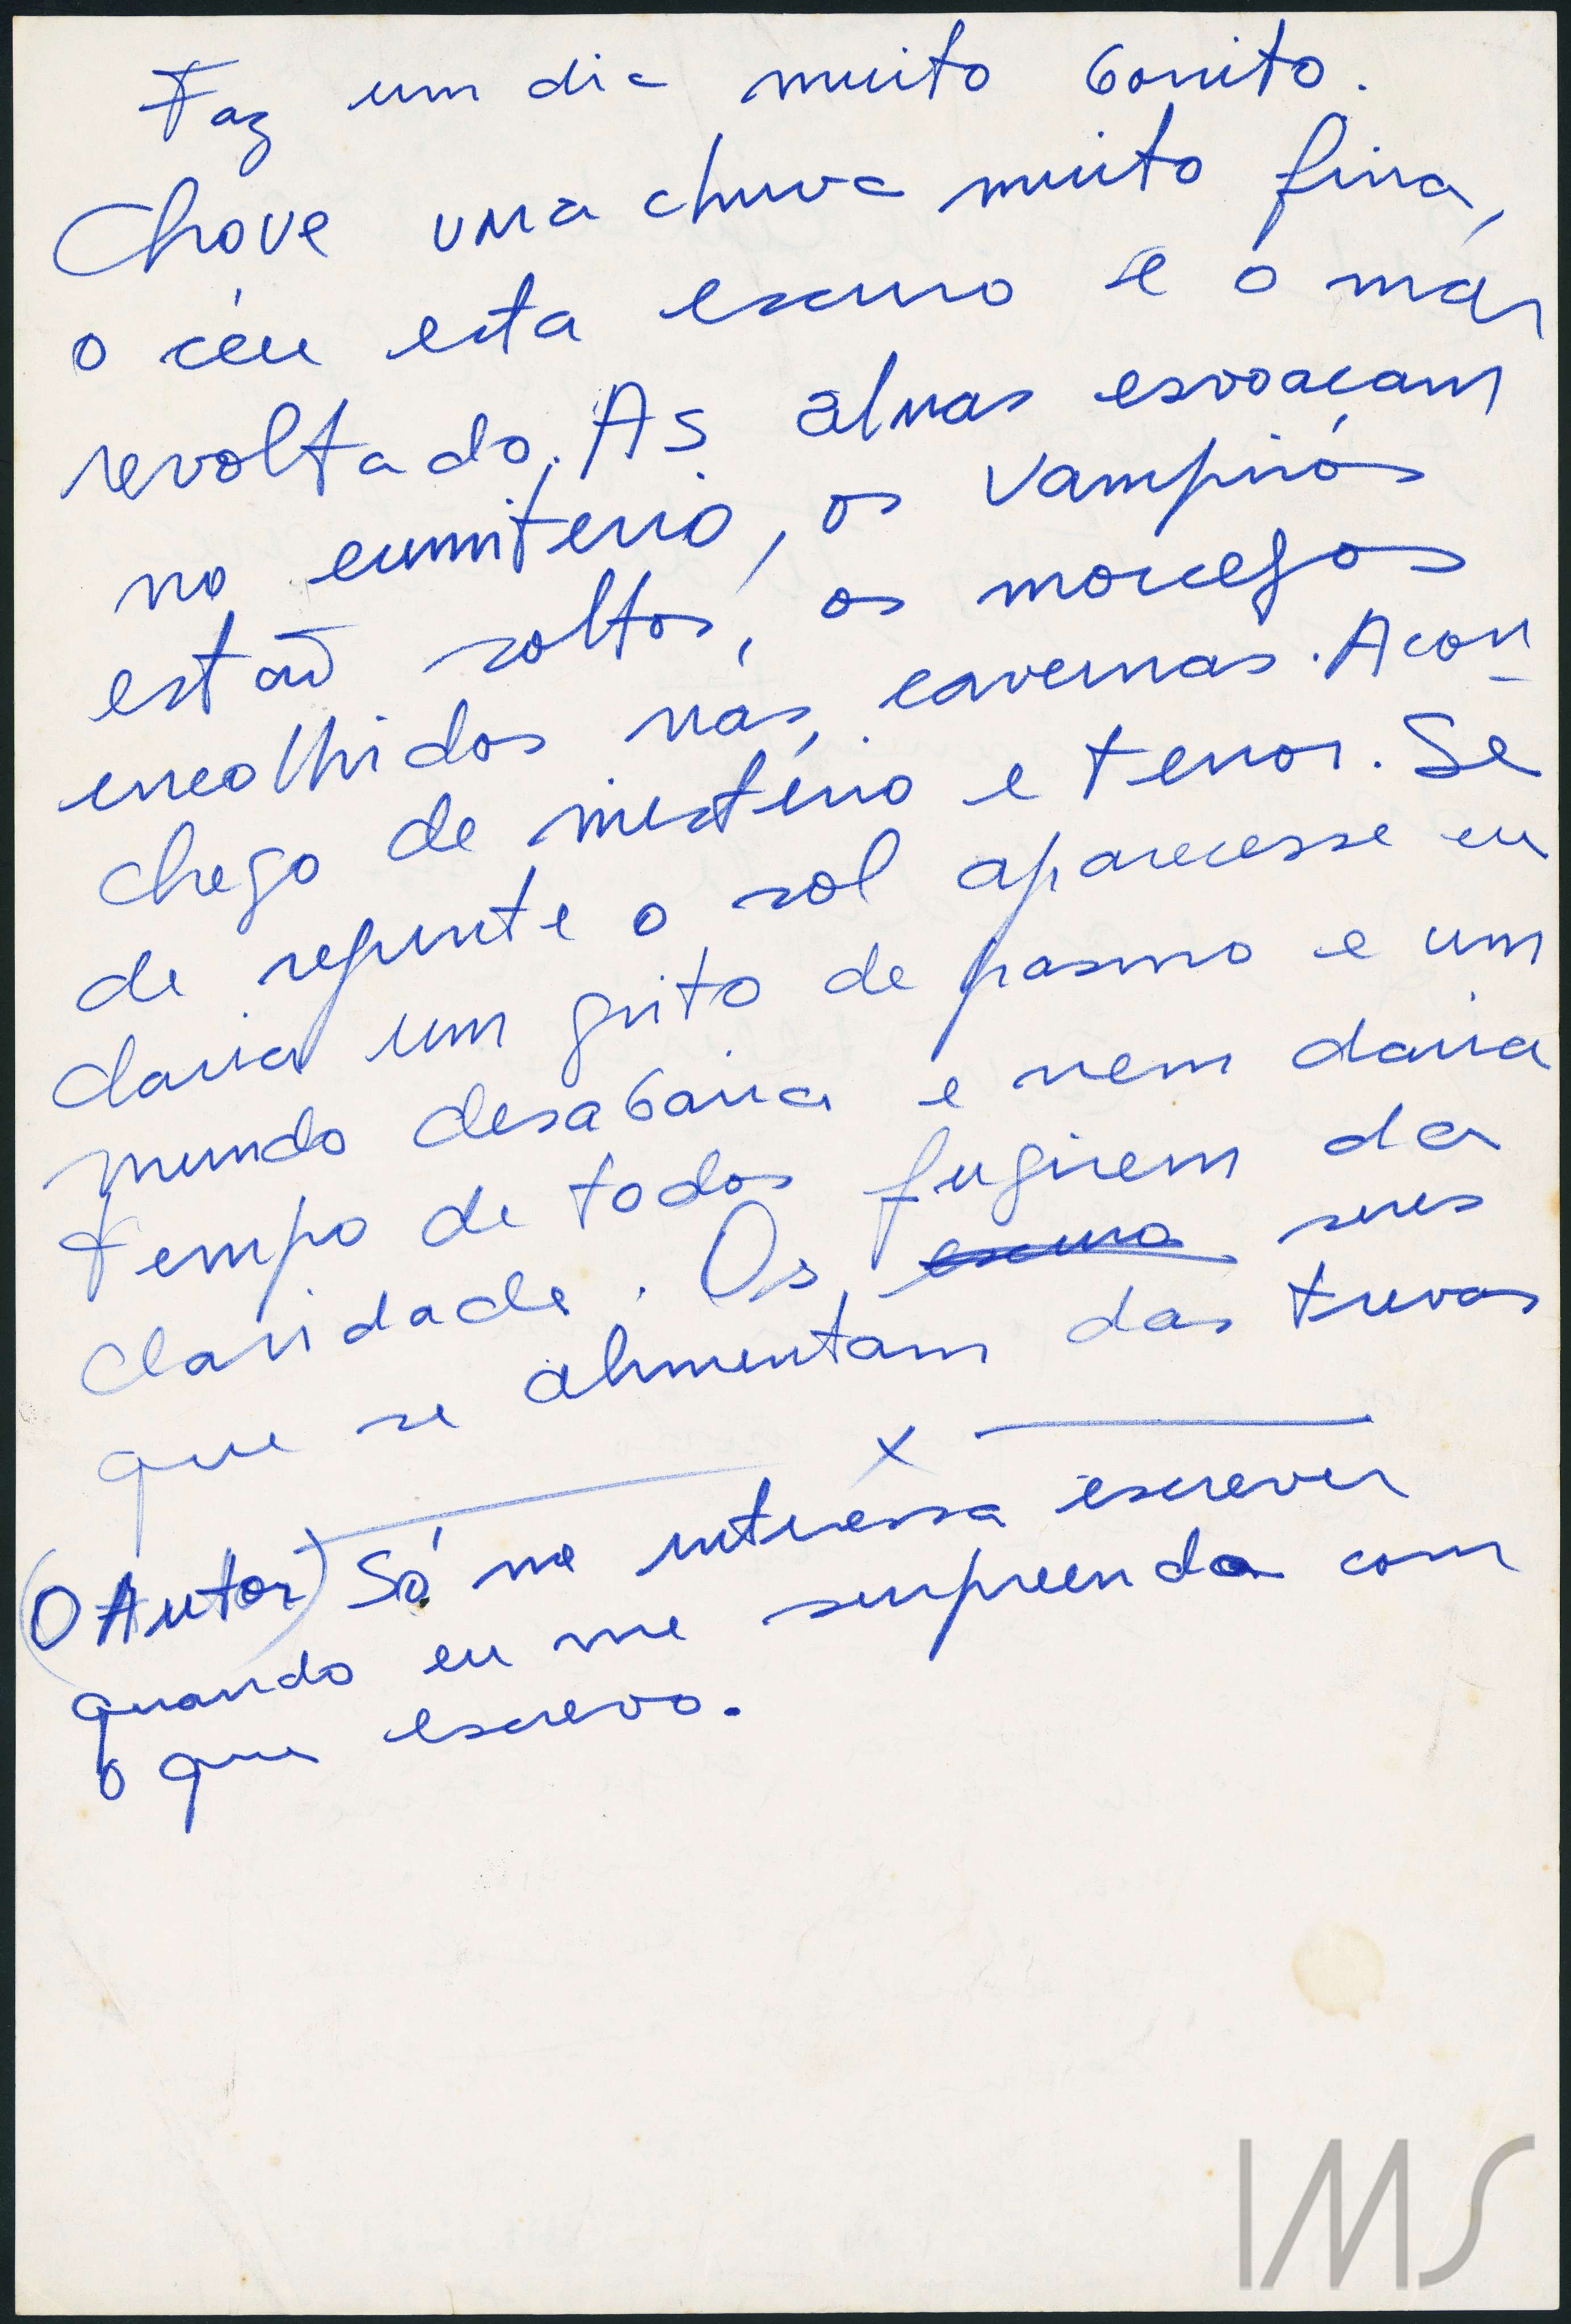 Faz um dia muito bonito.
Chove uma chuva muito fina,
o céu esta escuro e o mar
revoltado. As almas esvoaçam
no cemitério, os vampiros
estão soltos, os morcegos
encolhidos nas cavernas. Acon-
chego de mistério e terror. Se
de repente o sol aparecesse eu
daria um grito de pasmo e um
mundo desabaria e nem daria
tempo de todos fugirem da
claridade. Os escuro seres
que se alimentam das trevas
x
(O Autor) Só me interessa escrever
quando eu me surpreendo com
o que escrevo.
IMS